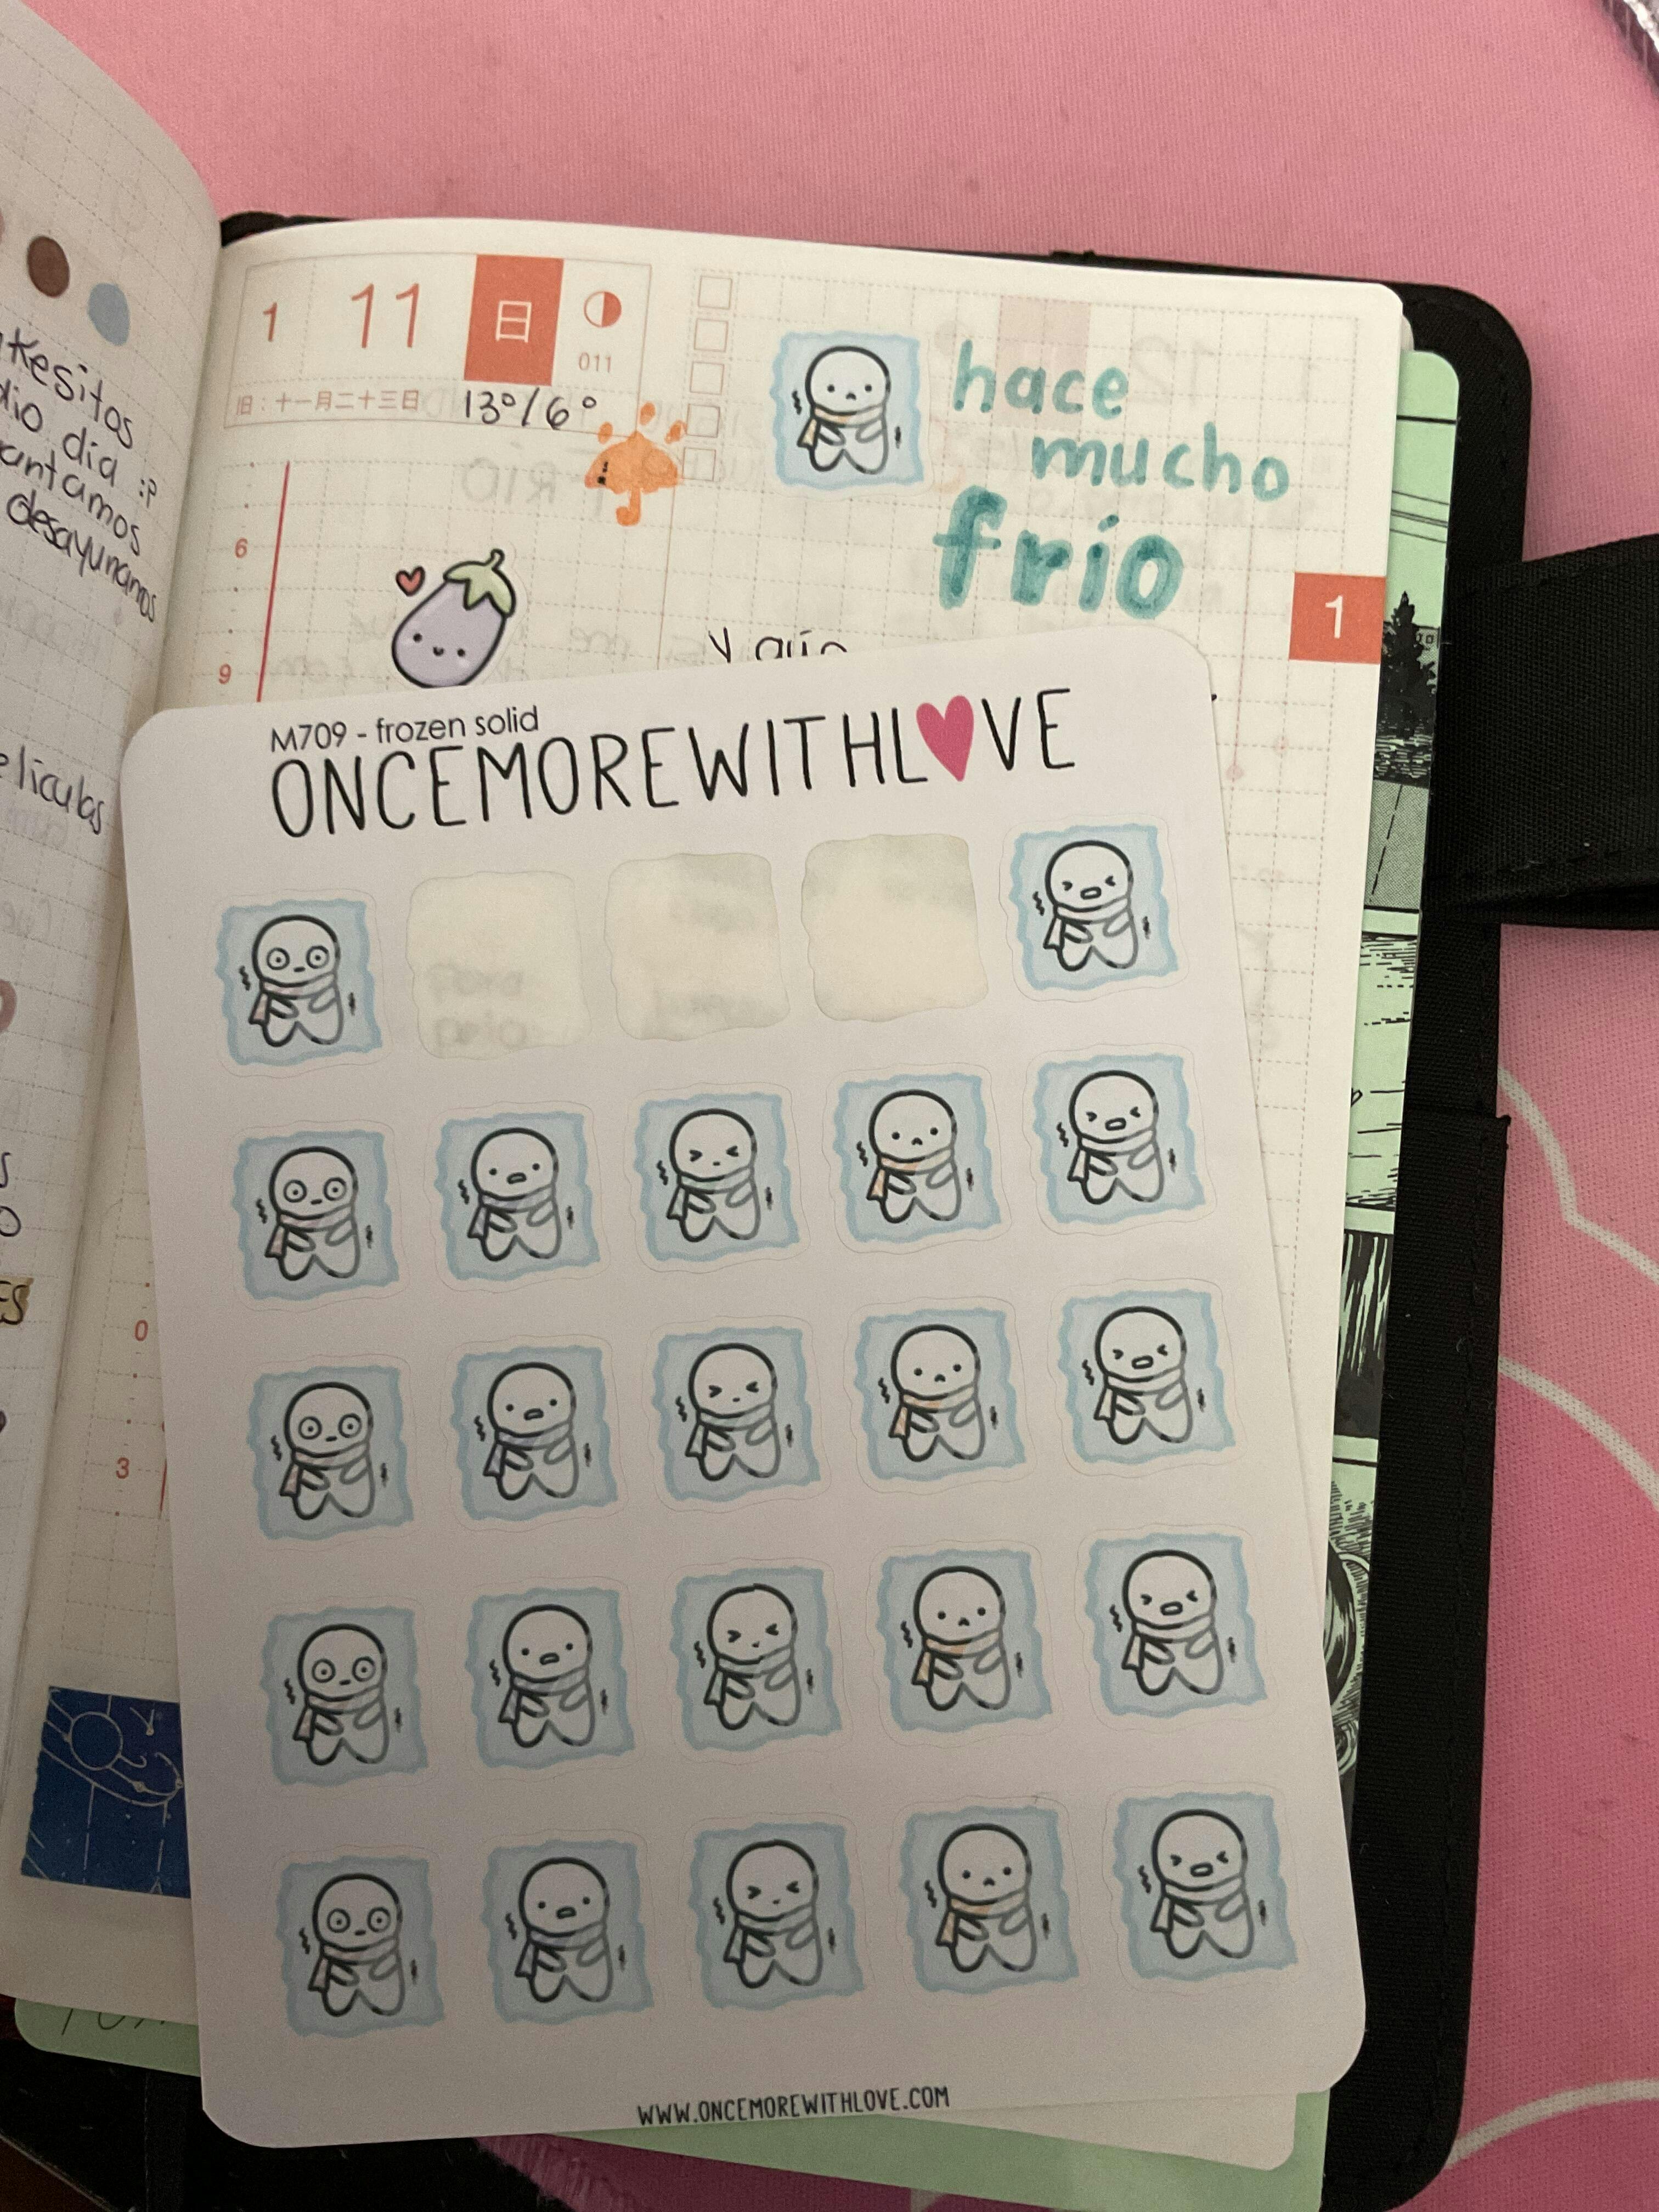 kesitos
dio día :P
antamos
desayunamos
elículas
1 11 日
011
旧:十一月二十三日 13°/6°
6
9
hace
mucho
frío
1
y aún
M709 - frozen solid
ONCEMOREWITHLOVE
0
3
WWW.ONCEMOREWITHLOVE.COM